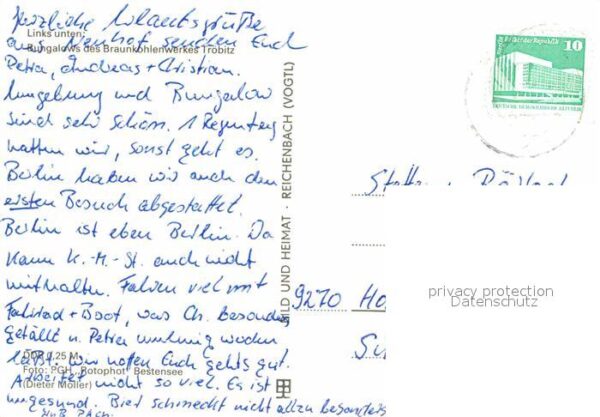 Herzliche Urlaubsgrüße
Links unten:
aus Neuhof senden Euch
Bungalows des Braunkohlenwerkes Tröbitz
Petra, Andreas + Christian.
Umgebung und Bungalow
sind sehr schön. 1 Regentag
hatten wir, sonst geht es.
Berlin haben wir auch den
ersten Besuch abgestattet.
Berlin ist eben Berlin. Da
kann K.-M.-St. auch nicht
mithalten. Fahren viel mit
Fahrrad + Boot, was Ch. besonders
gefällt u. Petra unruhig werden
läßt. Wir hoffen Euch gehts gut.
DDR 0,25 M
Foto: PGH „Rotophot" Bestensee
Arbeitet nicht so viel. Es ist
(Dieter Möller)
ungesund. Bier schmeckt nicht allzu besonders
BILD UND HEIMAT · REICHENBACH (VOGTL)
Palast der Republik
10
DEUTSCHE DEMOKRATISCHE REPUBLIK
9270
privacy protection
Datenschutz